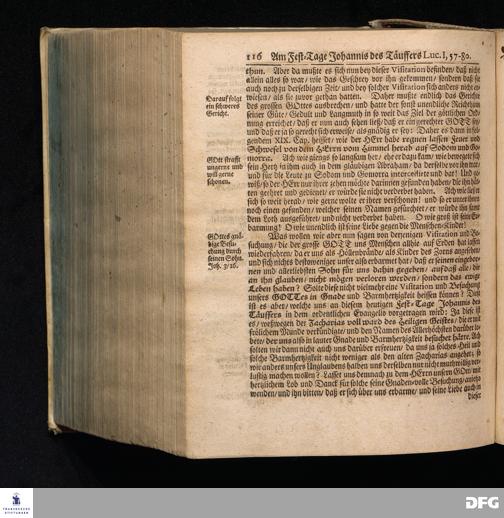 116 Am Fest-Tage Johannis des Täuffers Luc. I, 57-80.
thun. Aber da mußte es sich nun bey dieser Visitation befinden/ daß nicht
allein alles so war/ wie das Geschrey vor ihn gekommen/ sondern daß sie
auch noch zu derselbigen Zeit/ und bey solcher Visitation sich anders nicht
wiesen/ als sie zuvor gethan hatten. Daher mußte endlich das Gerichte
des grossen GOttes ausbrechen/ und hatte der sonst unendliche Reichthum
seiner Güte/ Gedult und Langmuth in so weit das Ziel der göttlichen Ord-
nung erreichet/ daß er nun auch sehen ließ/ daß er ein gerechter GOTT sey/
und daß er ja so gerecht sich erweise/ als gnädig er sey: Daher es dann in fol-
gendem XIX. Cap. heisset/ wie der HErr habe regnen lassen Feuer und
Schwefel von dem HErrn vom Himmel herab auf Sodom und Go-
morra. Ach wie giengs so langsam her/ ehe er dazu kam/ wie bewegete sich
sein Hertz in ihm auch in dem gläubigen Abraham/ da derselbe vor ihn trat
und für die Leute zu Sodom und Gomorra intercedirte und bat! Und ge-
wiß/ so der HErr nur ihrer zehen möchte darinnen gefunden haben/ die ihn hät-
ten geehret und gedienet/ er würde sie nicht verderbet haben. Ach wie ließ er
sich so weit herab/ wie gerne wolte er ihrer verschonen! und so er unter ihnen
noch einen gefunden/ welcher seinen Namen gefürchtet/ er würde ihn samt
dem Loth ausgeführet/ und nicht verderbet haben. O wie groß ist seine Er-
barmung! O wie unendlich ist seine Liebe gegen die Menschen-Kinder!
Was wollen wir aber nun sagen von derjenigen Visitation und Be-
suchung/ die der grosse GOTT uns Menschen allhie auf Erden hat lassen
wiederfahren/ da er uns als Höllenbrände/ als Kinder des Zorns angesehen/
und sich nichts destoweniger unser also erbarmet hat/ daß er seinen eingebor-
nen und allerliebsten Sohn für uns dahin gegeben/ aufdaß alle/ die
an ihn glauben/ nicht mögen verloren werden/ sondern das ewige
Leben haben? Solte diese nicht vielmehr eine Visitation und Besuchung
unsers GOTTes in Gnade und Barmhertzigkeit heissen können? Und
ist es aber/ welche uns an diesem heutigen Fest-Tage Johannis des
Täuffers in dem ordentlichen Evangelio vorgetragen wird: Ja diese ist
es/ weßwegen der Zacharias voll ward des Heiligen Geistes/ die er mit
frölichem Munde verkündigte/ und den Namen des Allerhöchsten darüber lo-
bete/ der uns also in lauter Gnade und Barmhertzigkeit besucher häte. Ach
solten wir dann nicht auch uns darüber erfreuen/ da uns ja solches Heil und
solche Barmhertzigkeit nicht weniger als den alten Zacharias angehet/ so
wir anders unsers Unglaubens halben uns derselben nur nicht muthwillig ver-
lustig machen wollen? Lasset uns demnach zu dem HErrn unserm GOtt mit
hertzlichem Lob und Danck für solche seine Gnaden-volle Besuchung/ anietzo
wenden/ und ihn bitten/ daß er sich über uns erbarme/ und seine Liebe auch in
dieser
Darauf folgt
ein schweres
Gericht.
GOtt straffet
ungerne und
will gerne
schonen.
GOttes gnä-
dige Besu-
chung durch
seinen Sohn.
Joh. 3/16.
FRANCKESCHE
STIFTUNGEN
DFG